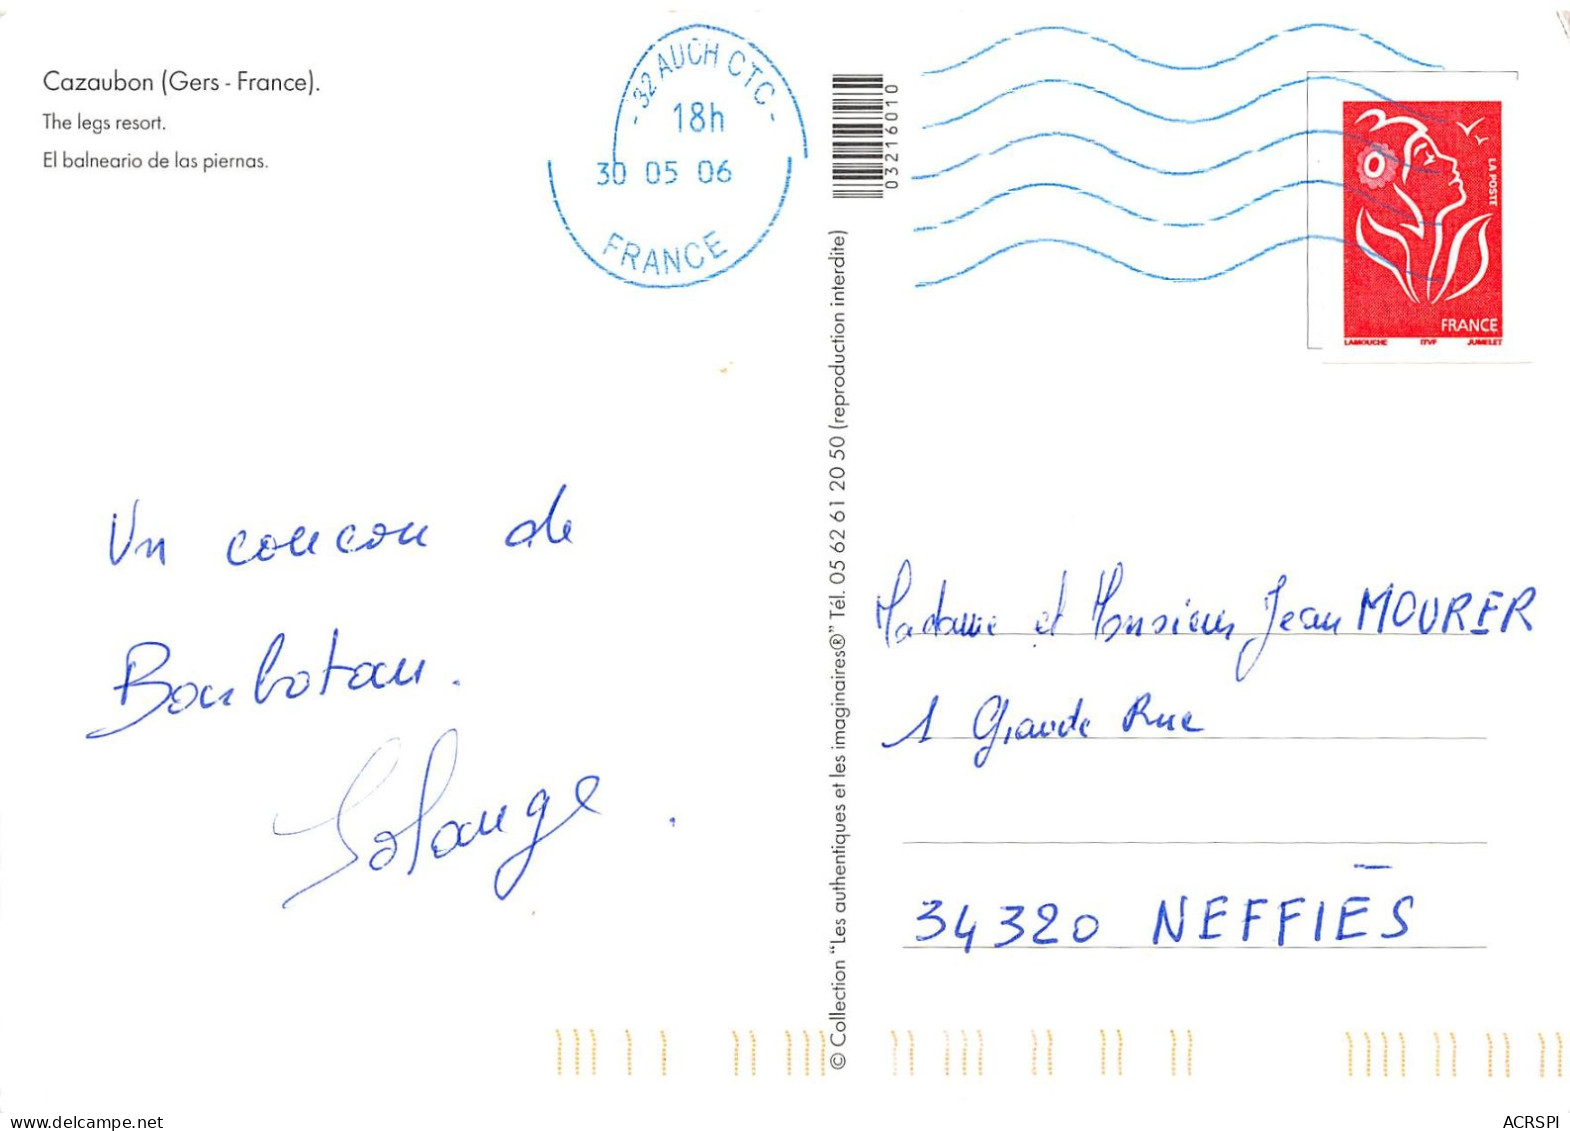 Cazaubon (Gers - France).
The legs resort.
El balneario de las piernas.
32 AUCH CTC
18h
30 05 06
FRANCE
03216010
LA POSTE
FRANCE
LAMOUCHE ITVF JUMELET
Un coucou de
Barbotan.
Solange.
© Collection "Les authentiques et les imaginaires®" Tél. 05 62 61 20 50 (reproduction interdite)
Madame et Monsieur Jean MOURER
1 Grande Rue
34320 NEFFIÈS
www.delcampe.net
ACRSPI